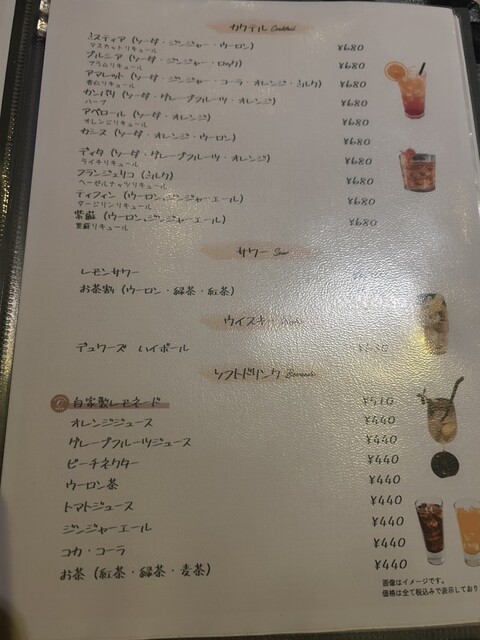 カクテル Cocktail
ミスティア (ソーダ・ジンジャー・ウーロン) ¥680
マスカットリキュール
プルシア (ソーダ・ジンジャー・ロック) ¥680
プラムリキュール
アマレット (ソーダ・ジンジャー・コーラ・オレンジ・ミルク) ¥680
杏仁リキュール
カンパリ (ソーダ・グレープフルーツ・オレンジ) ¥680
ハーブ
アペロール (ソーダ・オレンジ) ¥680
オレンジリキュール
カシス (ソーダ・オレンジ・ウーロン) ¥680
ディタ (ソーダ・グレープフルーツ・オレンジ) ¥680
ライチリキュール
フランジェリコ (ミルク) ¥680
ヘーゼルナッツリキュール
ティフィン (ウーロン、ジンジャーエール) ¥680
ダージリンリキュール
紫蘇 (ウーロン、ジンジャーエール) ¥680
紫蘇リキュール
サワー Sour
レモンサワー
お茶割 (ウーロン・緑茶・紅茶)
ウイスキー
デュワーズ ハイボール ¥680
ソフトドリンク
自家製レモネード ¥510
オレンジジュース ¥440
グレープフルーツジュース ¥440
ピーチネクター ¥440
ウーロン茶 ¥440
トマトジュース ¥440
ジンジャーエール ¥440
コカ・コーラ ¥440
お茶 (紅茶・緑茶・麦茶) ¥440
画像はイメージです。
価格は全て税込みで表示しており